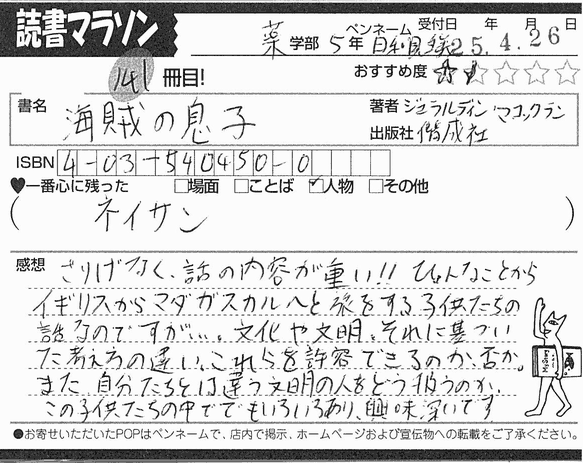 読書マラソン
薬 学部 5年 ペンネーム 受付日 年 月 日
25.4.26
141 冊目! おすすめ度 ★☆☆☆☆
書名 海賊の息子
著者 ジェラルディン・マコックラン
出版社 偕成社
ISBN 4-03-540450-0
♥一番心に残った □場面 □ことば ☑人物 □その他
( ネイサン )
感想 さりげなく、話の内容が重い!! ひょんなことから
イギリスからマダガスカルへと旅をする子供たちの
話なのですが…。文化や文明、それに基づい
た考え方の違い、これらを許容できるのか、否か。
また、自分たちとは違う文明の人をどう扱うのか、
この子供たちの中ででもいろいろあり、興味深いです
●お寄せいただいたPOPはペンネームで、店内で掲示、ホームページおよび宣伝物への転載をご了承ください。